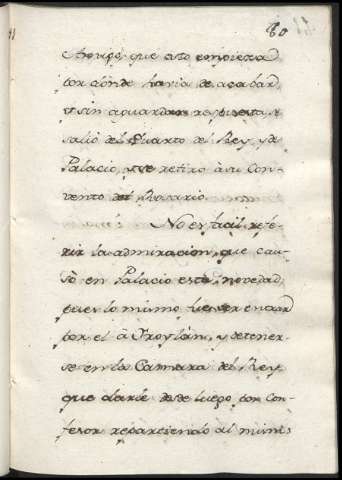 80
tiempo, que esto empieza
por donde havia de acabar,
y sin aguardar respuesta se
salió del Quarto del Rey, y de
Palacio, y se retiro à su Con-
vento del Rosario.
No es facil refe-
rir la admiracion, que cau-
sò en Palacio esta novedad,
pues lo mismo fue ver entrar
por el à Froylàn, y detener-
se en la Camara del Rey
que darle desde luego por Con-
fesor, repartiendo al mismo